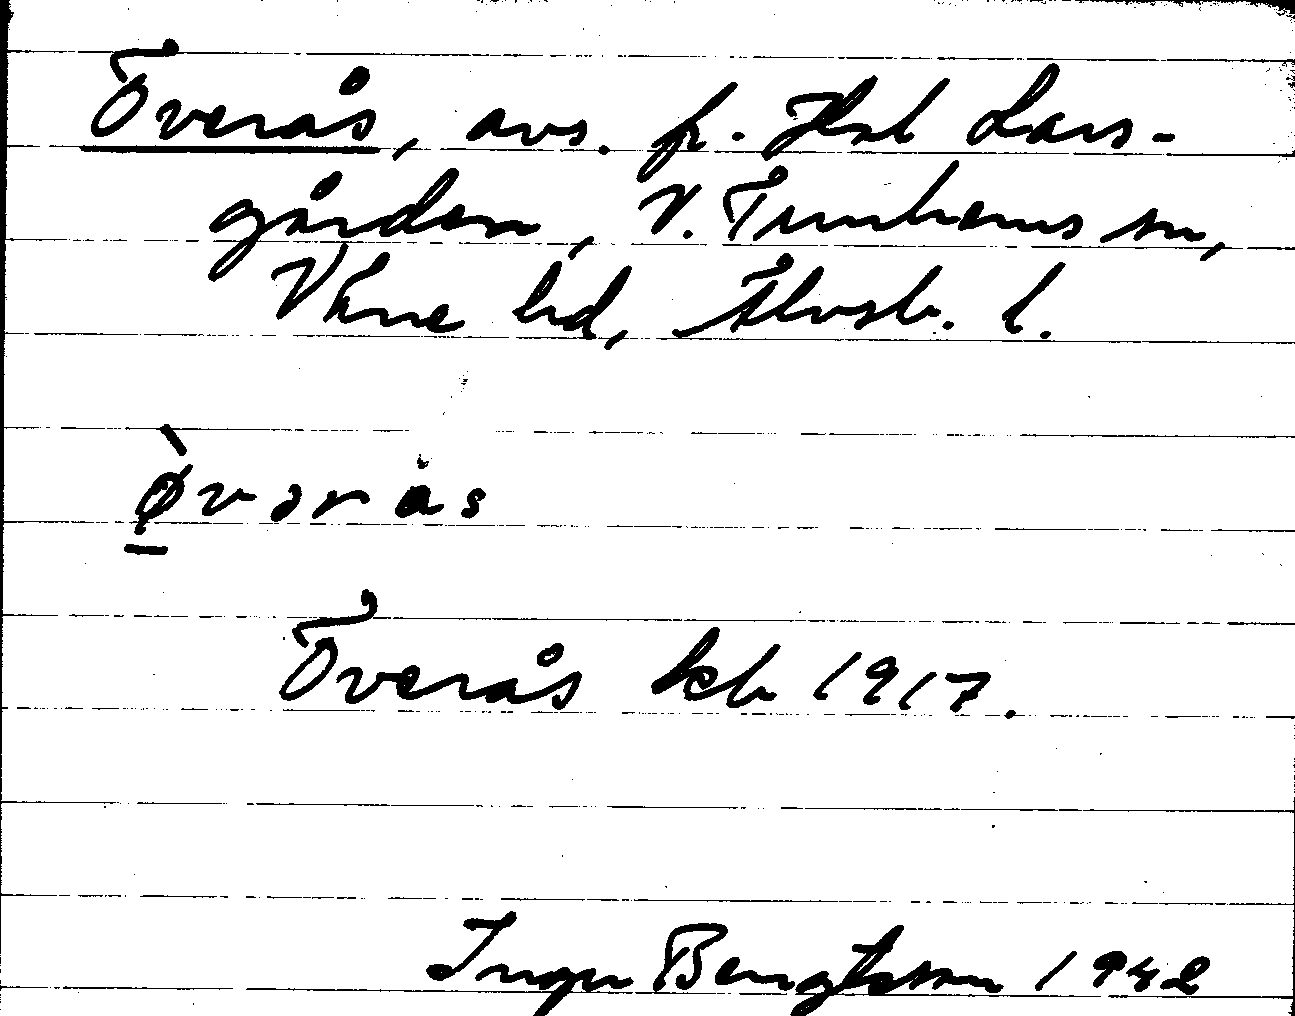 Överås, avs. fr. Hal Lars-
gården, V. Tunhems sn,
Väne hd, Älvsb. l.
ø̀vərås
Överås kb 1917.
Inger Bengtsson 1942